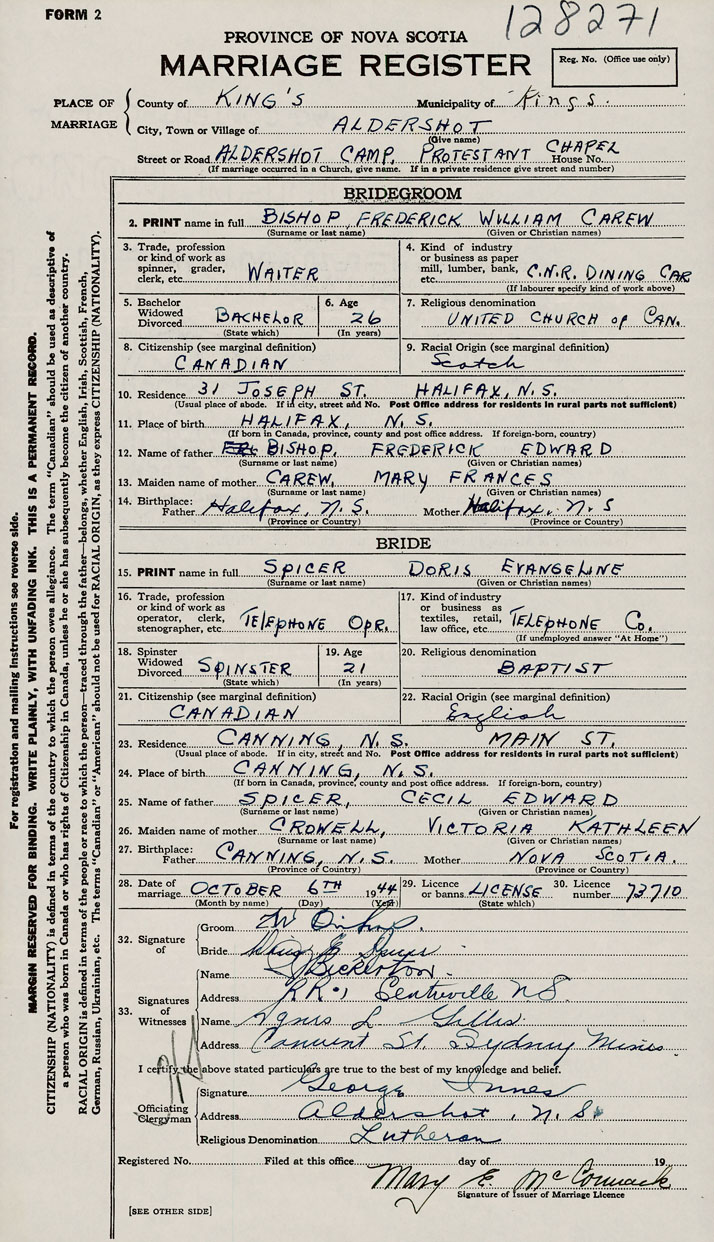 FORM 2
128271
PROVINCE OF NOVA SCOTIA
MARRIAGE REGISTER
Reg. No. (Office use only)
PLACE OF MARRIAGE
County of KING'S Municipality of Kings.
City, Town or Village of ALDERSHOT
(Give name)
Street or Road ALDERSHOT CAMP, PROTESTANT CHAPEL House No.
(If marriage occurred in a Church, give name. If in a private residence give street and number)
BRIDEGROOM
2. PRINT name in full BISHOP, FREDERICK WILLIAM CAREW
(Surname or last name) (Given or Christian names)
3. Trade, profession or kind of work as spinner, grader, clerk, etc. WAITER
4. Kind of industry or business as paper mill, lumber, bank, etc. C.N.R. DINING CAR
(If labourer specify kind of work above)
5. Bachelor Widowed Divorced BACHELOR
(State which)
6. Age 26
(In years)
7. Religious denomination
UNITED CHURCH of CAN.
8. Citizenship (see marginal definition)
CANADIAN
9. Racial Origin (see marginal definition)
Scotch
10. Residence 31 JOSEPH ST. HALIFAX, N.S.
(Usual place of abode. If in city, street and No. Post Office address for residents in rural parts not sufficient)
11. Place of birth HALIFAX, N.S.
(If born in Canada, province, county and post office address. If foreign-born, country)
12. Name of father BISHOP, FREDERICK EDWARD
(Surname or last name) (Given or Christian names)
13. Maiden name of mother CAREW, MARY FRANCES
(Surname or last name) (Given or Christian names)
14. Birthplace: Father Halifax, N.S. Mother Halifax, N.S
(Province or Country) (Province or Country)
BRIDE
15. PRINT name in full SPICER DORIS EVANGELINE
(Surname or last name) (Given or Christian names)
16. Trade, profession or kind of work as operator, clerk, stenographer, etc. TELEPHONE OPR.
17. Kind of industry or business as textiles, retail, law office, etc. TELEPHONE Co.
(If unemployed answer "At Home")
18. Spinster Widowed Divorced SPINSTER
(State which)
19. Age 21
(In years)
20. Religious denomination
BAPTIST
21. Citizenship (see marginal definition)
CANADIAN
22. Racial Origin (see marginal definition)
English
23. Residence CANNING, N.S. MAIN ST.
(Usual place of abode. If in city, street and No. Post Office address for residents in rural parts not sufficient)
24. Place of birth CANNING, N.S.
(If born in Canada, province, county and post office address. If foreign-born, country)
25. Name of father SPICER, CECIL EDWARD
(Surname or last name) (Given or Christian names)
26. Maiden name of mother CROWELL, VICTORIA KATHLEEN
(Surname or last name) (Given or Christian names)
27. Birthplace: Father CANNING, N.S. Mother NOVA SCOTIA.
(Province or Country) (Province or Country)
28. Date of marriage OCTOBER 6TH 1944
(Month by name) (Day) (Year)
29. Licence or banns LICENSE
(State which)
30. Licence number 73710
32. Signature of
Groom
Bride
33. Signatures of Witnesses
Name Bickerton
Address R.R.1, Centreville NS
Name Agnes L Gillis
Address Convent St. Sydney Mines
I certify the above stated particulars are true to the best of my knowledge and belief.
Officiating Clergyman
Signature George Innes
Address Aldershot, N.S.
Religious Denomination Lutheran
Registered No. Filed at this office day of 19
Mary E. McCormack
Signature of Issuer of Marriage Licence
[SEE OTHER SIDE]
For registration and mailing instructions see reverse side.
MARGIN RESERVED FOR BINDING. WRITE PLAINLY, WITH UNFADING INK. THIS IS A PERMANENT RECORD.
CITIZENSHIP (NATIONALITY) is defined in terms of the country to which the person owes allegiance. The term "Canadian" should be used as descriptive of
a person who was born in Canada or who has rights of Citizenship in Canada, unless he or she has subsequently become the citizen of another country.
RACIAL ORIGIN is defined in terms of the people or race to which the person—traced through the father—belongs, whether English, Irish, Scottish, French,
German, Russian, Ukrainian, etc. The terms "Canadian" or "American" should not be used for RACIAL ORIGIN, as they express CITIZENSHIP (NATIONALITY).